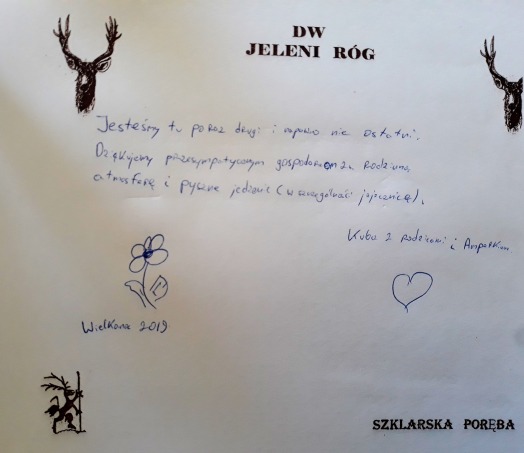 DW
JELENI RÓG
Jesteśmy tu poraz drugi i napewno nie ostatni.
Dziękujemy przesympatycznym gospodarzom za rodzinną
atmosferę i pyszne jedzenie (w szczególności jajecznicę).
Kuba z rodzicami i
Wielkanoc 2019
SZKLARSKA PORĘBA